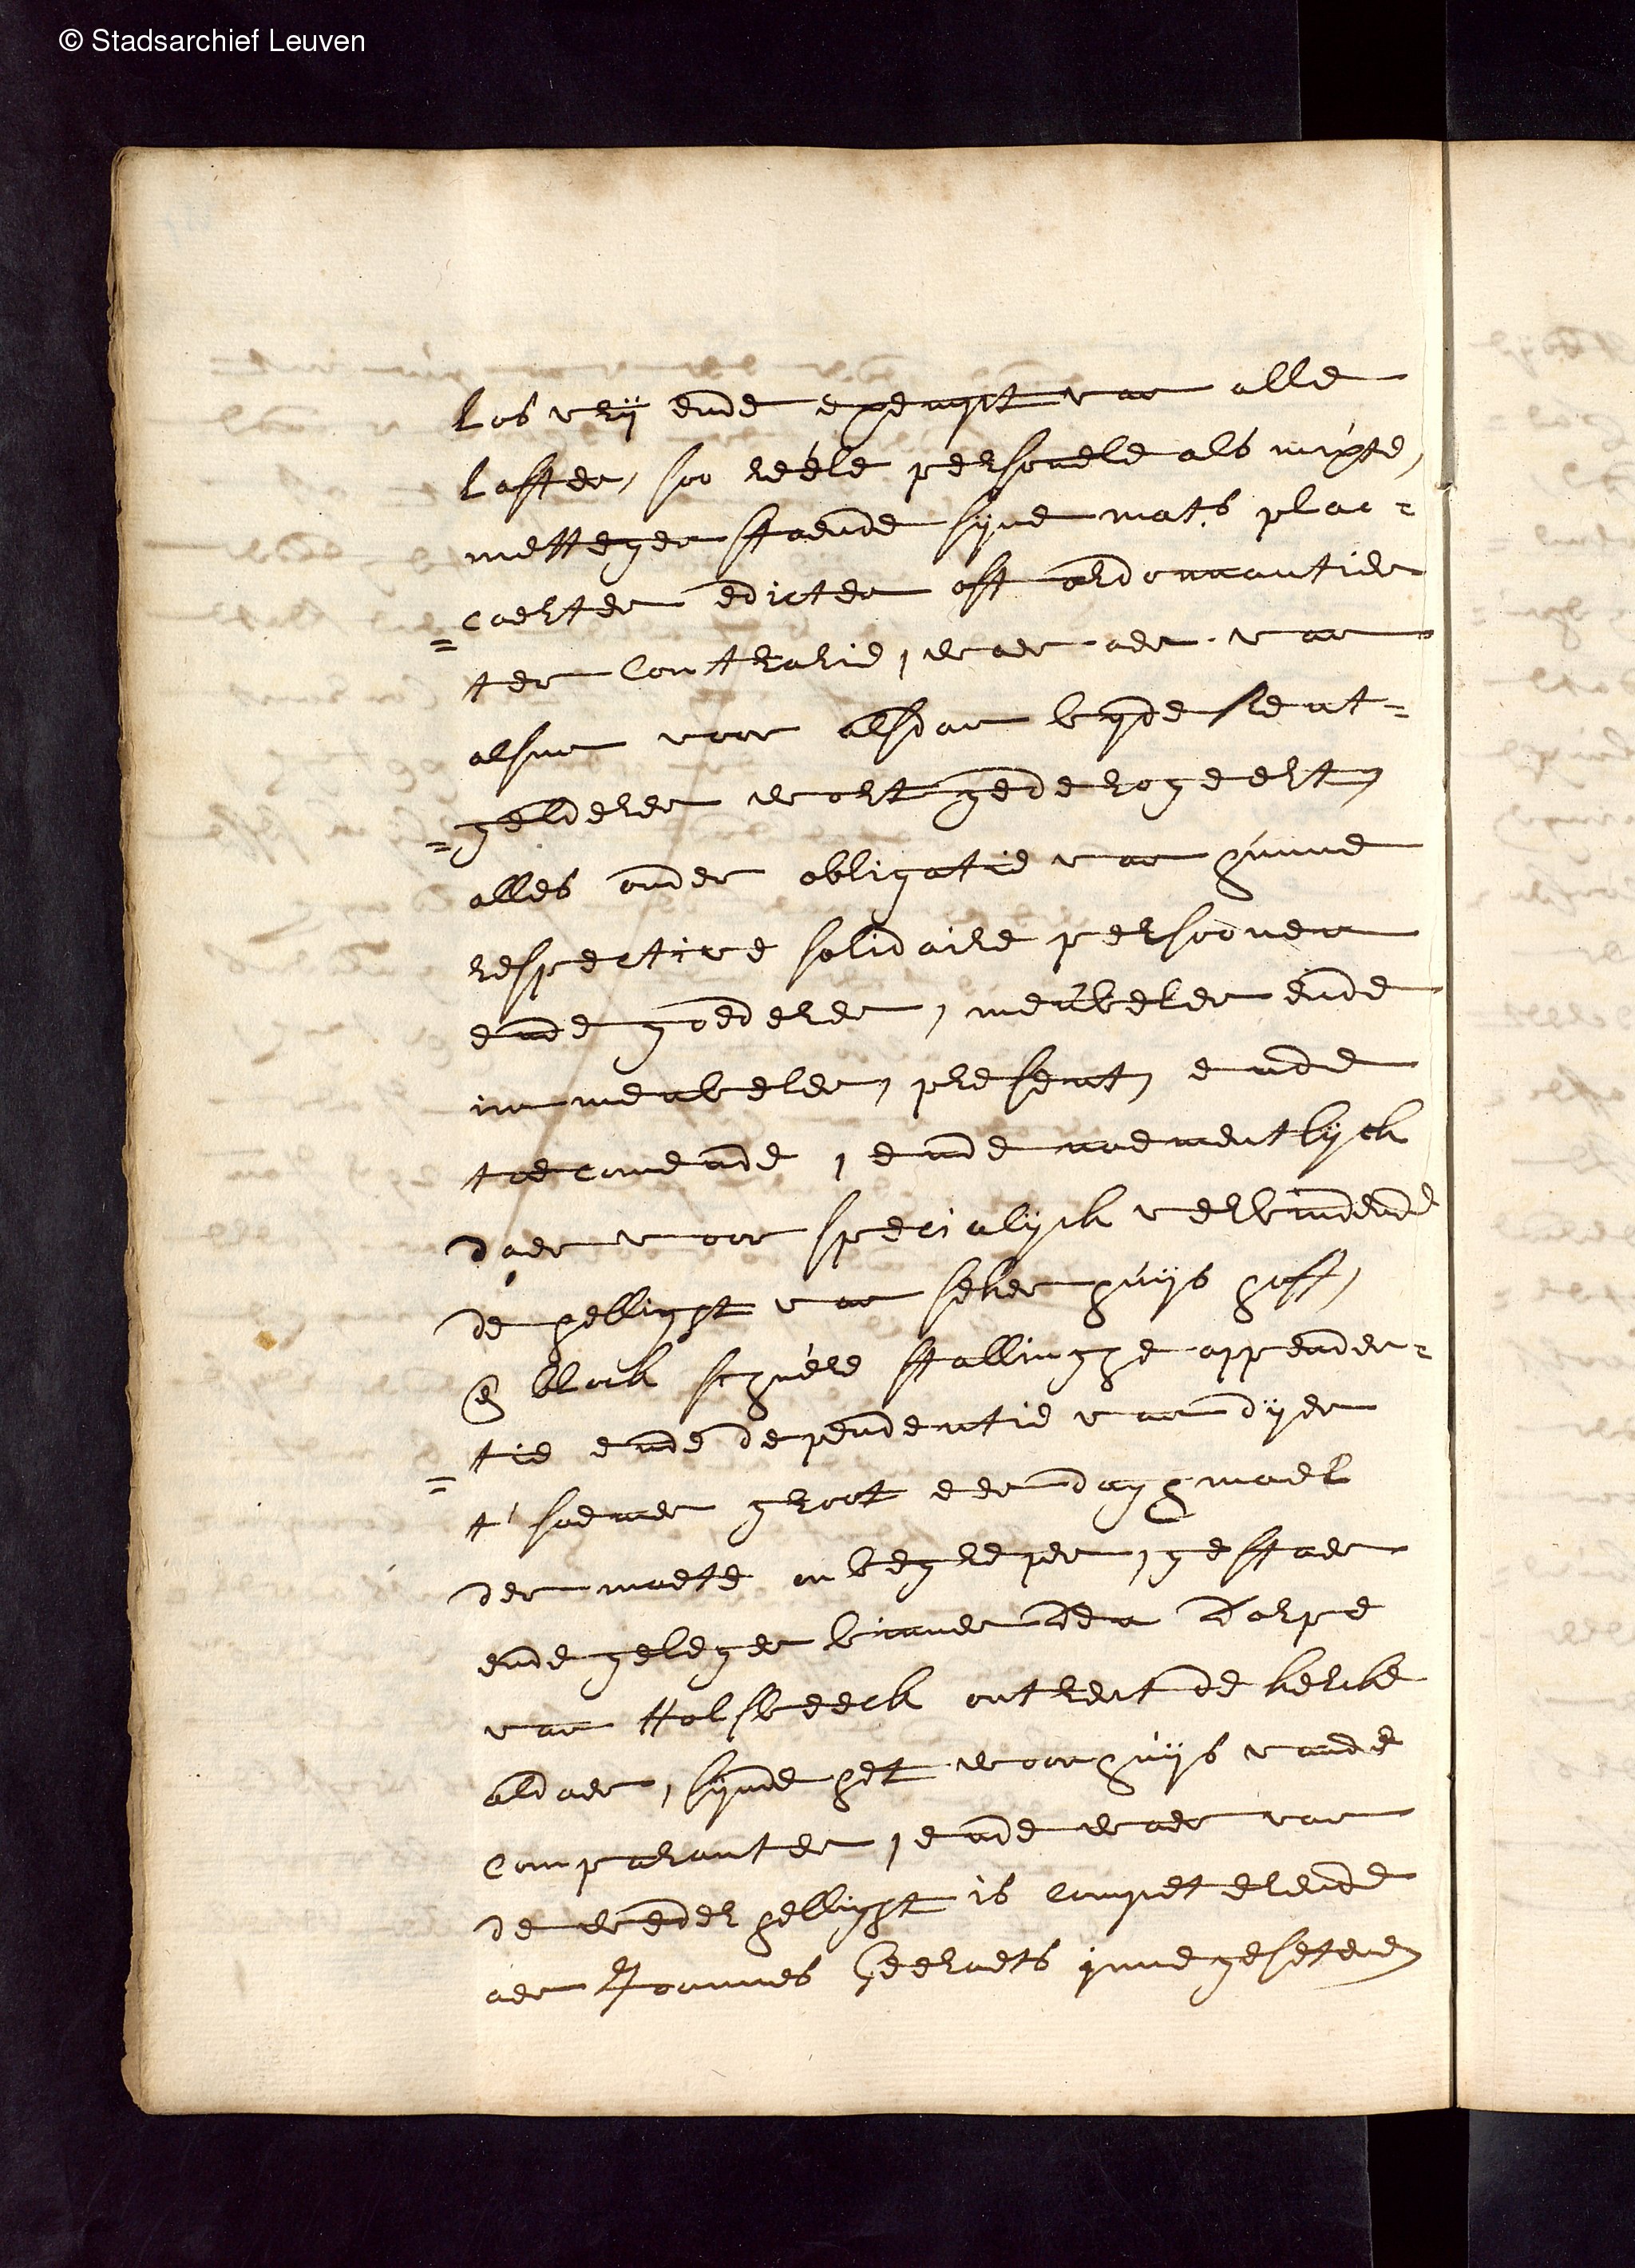 © Stadsarchief Leuven
los vrij ende exempt van alle
lasten, soo reële personele als mixte,
niettegenstaende sijne mats. plac=
=caerten edicten oft ordonnantien
ter contrarie, waer aen van
alsnu voor alsdan byde rent=
=gelderen wort gederogeert,
alles onder obligatie van hunne
respective solidaire persoonen
ende goederen, meubelen ende
immeubelen, present, ende
toecomende, ende naementlijck
daer voor specialijck verbindende
de hellicht van seker huijs hoff,
block schuere stallinghe appenden=
=tie ende dependentie van dijen
t' saemen groot een daghmael
der maete onbegrepen, gestaen
ende gelegen binnen den dorpe
van Holsbeeck ontrent de kercke
aldaer, sijnde het woonhuijs vande
Comparanten, ende waer van
de weder hellicht is competerende
aen Joannes Geeraets innegesetene